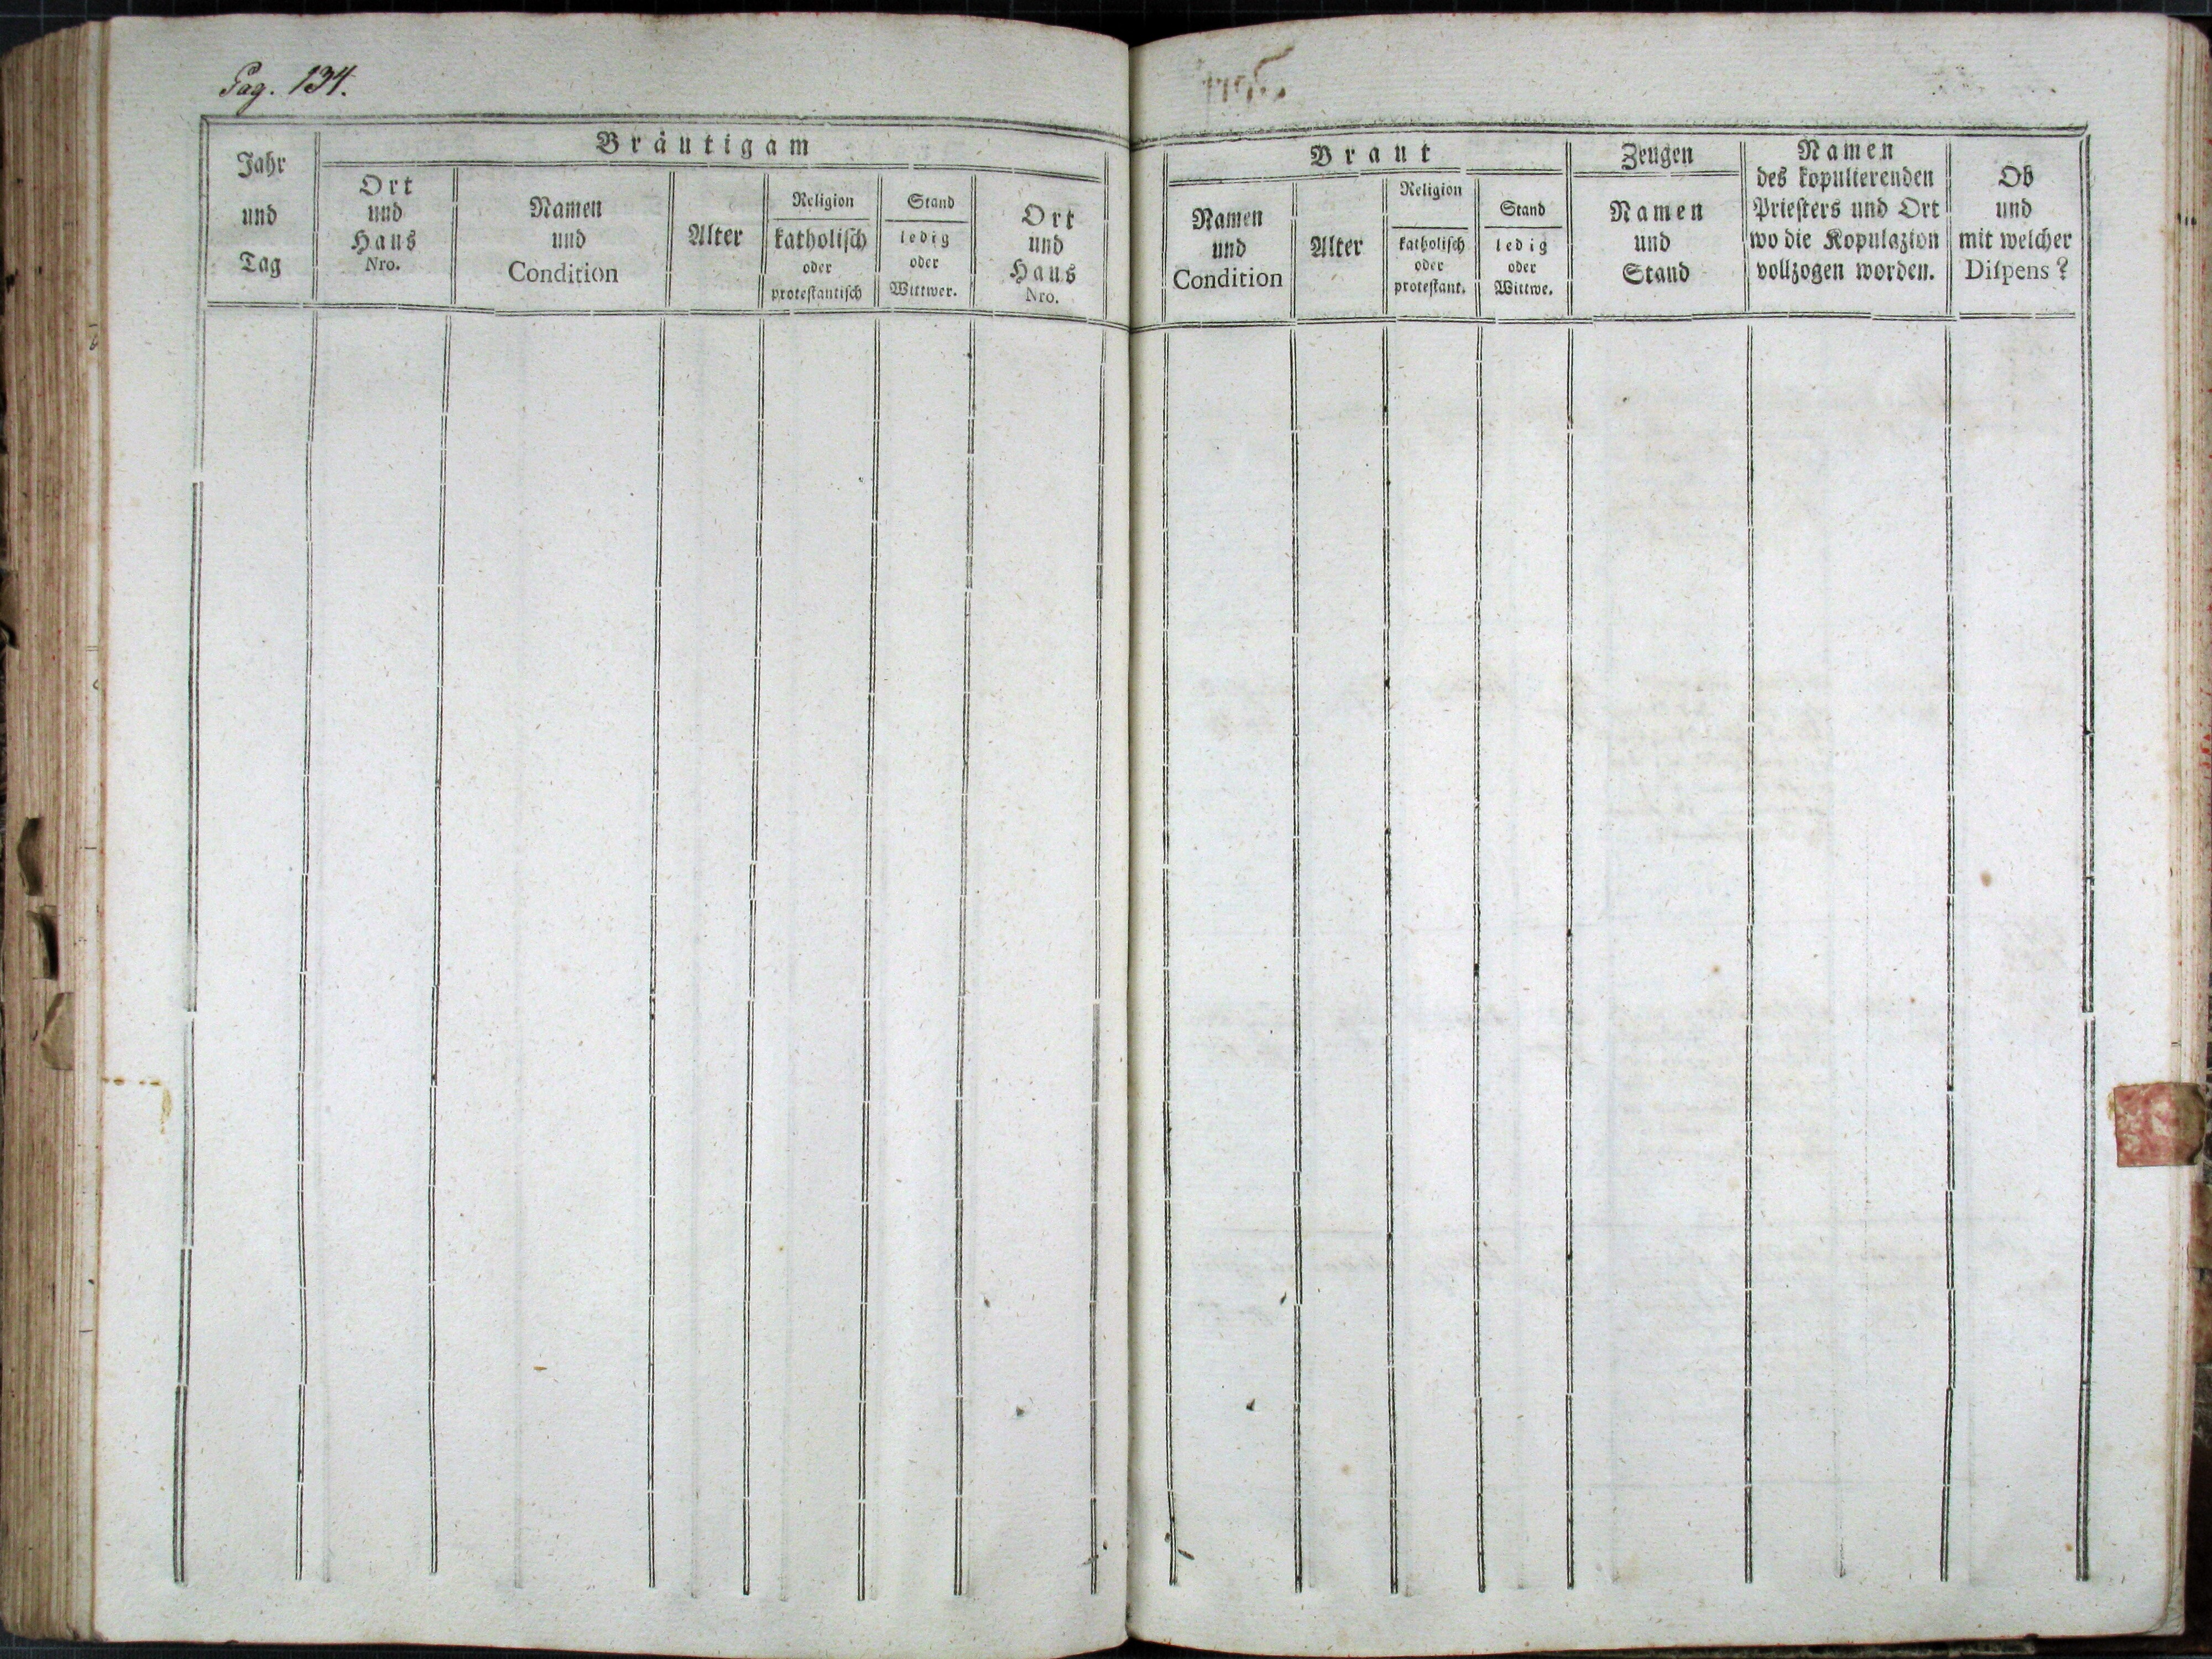 Pag. 134.
Bräutigam
Jahr
und
Tag
Ort
und
Haus
Nro.
Namen
und
Condition
Alter
Religion
katholisch
oder
protestantisch
Stand
ledig
oder
Wittwer.
Ort
und
Haus
Nro.
Braut
Namen
und
Condition
Alter
Religion
katholisch
oder
protestant.
Stand
ledig
oder
Wittwe.
Zeugen
Namen
und
Stand
Namen
des kopulierenden
Priesters und Ort
wo die Kopulazion
vollzogen worden.
Ob
und
mit welcher
Dispens?